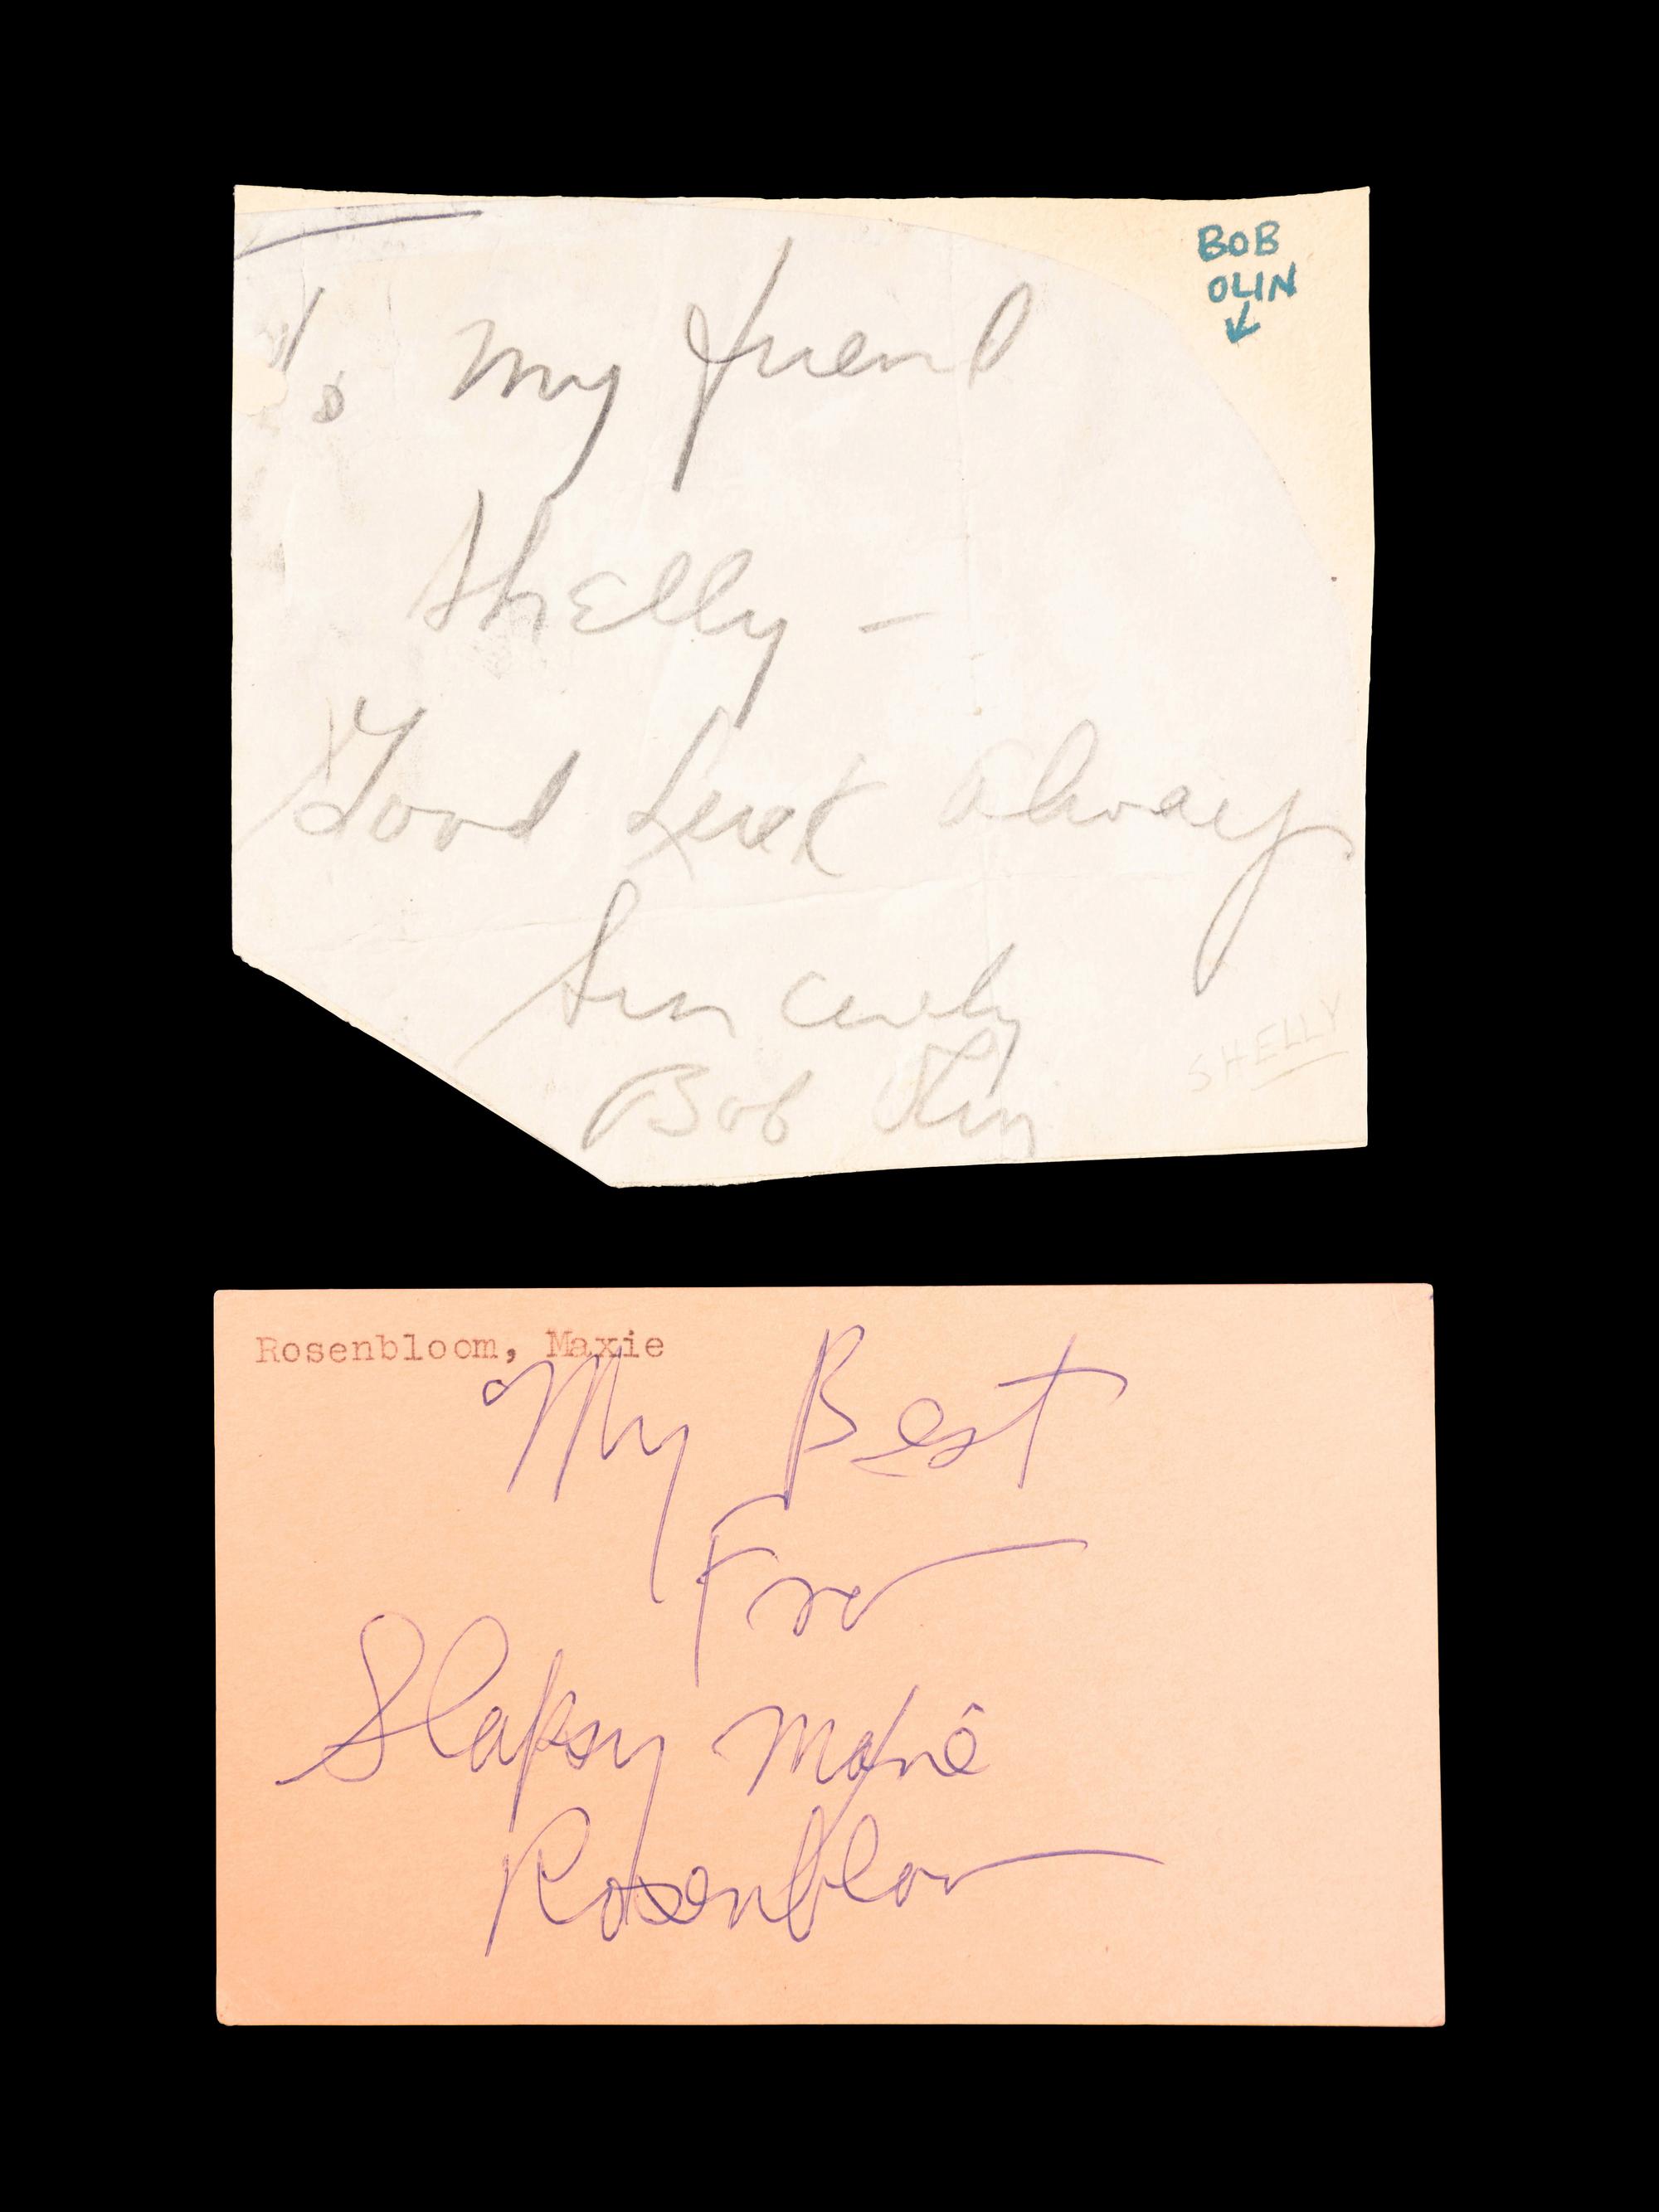 BOB
OLIN
To my friend
Shelly –
Good Luck Always
Sincerely
Bob Olin
SHELLY
Rosenbloom, Maxie
My Best
From
Slapsy Maxie
Rosenbloom